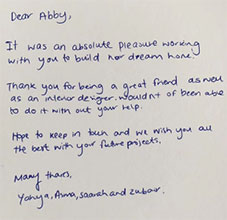 Dear Abby,
It was an absolute pleasure working
with you to build our dream home.
Thank you for being a great friend as well
as an interior designer. wouldn't of been able
to do it with out your help.
Hope to keep in touch and we wish you all
the best with your future projects.
Many thanks,
Yahya, Amna, saarah and zubair.